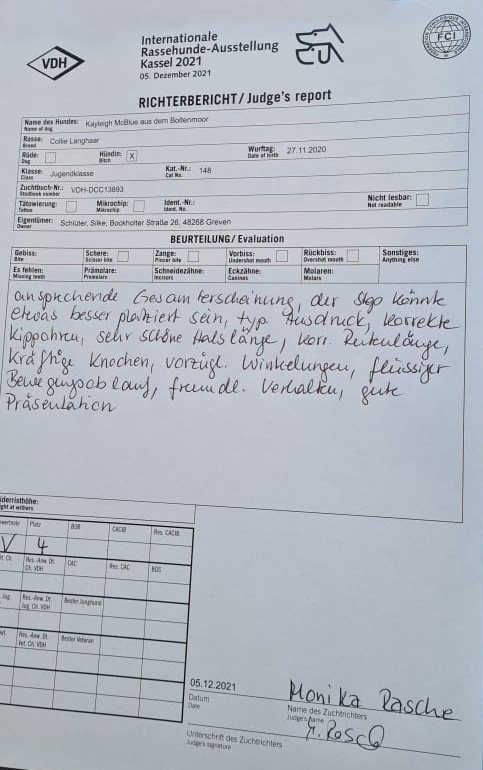 VDH
Internationale
Rassehunde-Ausstellung
Kassel 2021
05. Dezember 2021
FCI
RICHTERBERICHT/Judge's report
Name des Hundes: Kayleigh McBlue aus dem Boltenmoor
Name of dog
Rasse: Collie Langhaar
Breed
Rüde: Hündin: X Wurftag: 27.11.2020
Dog Bitch Date of birth
Klasse: Jugendklasse Kat.-Nr.: 148
Class Cat No.
Zuchtbuch-Nr.: VDH-DCC13893
Studbook number
Tätowierung: Mikrochip: Ident.-Nr.: Nicht lesbar:
Tattoo Microchip Ident. No. Not readable
Eigentümer: Schlüter, Silke, Bockholter Straße 26, 48268 Greven
Owner
BEURTEILUNG/Evaluation
Gebiss: Schere: Zange: Vorbiss: Rückbiss: Sonstiges:
Bite Scissor bite Pincer bite Undershot mouth Overshot mouth Anything else
Es fehlen: Prämolare: Schneidezähne: Eckzähne: Molaren:
Missing teeth Premolars Incisors Canines Molars
ansprechende Gesamterscheinung, der Stop könnte
etwas besser plaziert sein, typ. Ausdruck, korrekte
Kippohren, sehr schöne Halslänge, korr. Rutenlänge,
kräftige Knochen, vorzügl. Winkelungen, flüssiger
Bewegungsablauf, freundl. Verhalten, gute
Präsentation
iderristhöhe:
ght at withers
wertnote Platz BOB CACIB Res. CACIB
V 4
t. Ch. Res.-Anw. Dt. Ch. VDH CAC Res. CAC BOS
Jug. Res.-Anw. Dt. Jug. Ch. VDH Bester Junghund
Vet. Res.-Anw. Dt. Vet. Ch. VDH Bester Veteran
05.12.2021 Monika Rasche
Datum Name des Zuchtrichters
Date Judge's name
Unterschrift des Zuchtrichters
Judge's signature